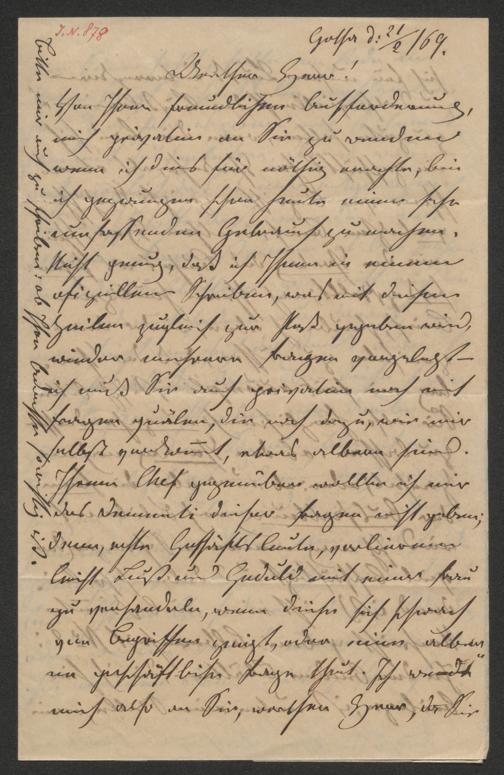 J.N. 878
Gotha d: 21/2 /69.
Werther Herr!
Von Ihrer freundlichen Aufforderung,
mich privatim an Sie zu wenden
wenn ich dies für nöthig erachte, bin
ich gezwungen schon heute einen sehr
umfassenden Gebrauch zu machen.
Nicht genug, daß ich Ihnen in einem
offiziellen Schreiben, was mit diesen
Zeilen zugleich zur Post gegeben wird,
wieder mehrere Fragen vorgelegt –
ich muß Sie auch privatim noch mit
Fragen quälen, die noch dazu, wie mir
selbst vorkommt, etwas albern sind.
Ihrem Chef gegenüber wollte ich mir
das Dementi dieser Fragen nicht geben;
denn, echte Geschäftsleute, verlieren
leicht Lust und Geduld mit einer Frau
zu verhandeln, wenn diese sich schwach
von Begriffen zeigt, oder eine albern
un geschäftliche Frage thut. Ich wende
mich also an Sie, werther Herr, der Sie
bitte mir auch zu schreiben: ob Ihr